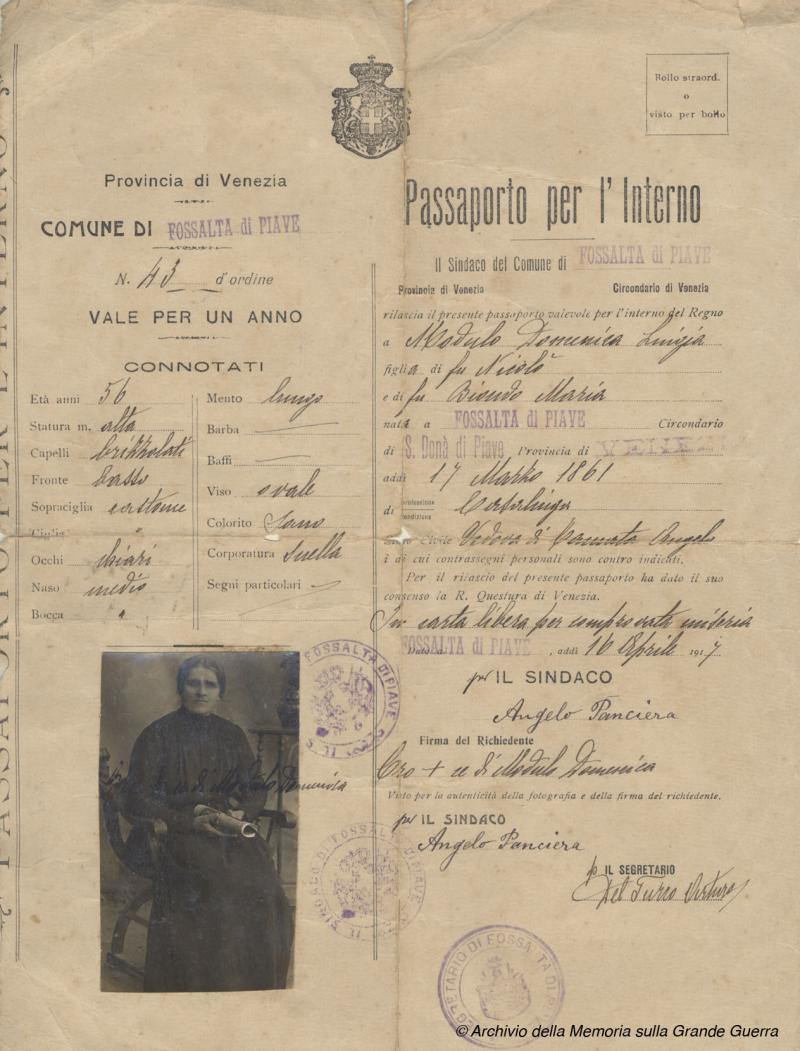 Provincia di Venezia
COMUNE DI FOSSALTA di PIAVE
N. 43 d'ordine
VALE PER UN ANNO
CONNOTATI
Età anni 56
Statura m. alta
Capelli brizzolati
Fronte bassa
Sopraciglia castane
Ciglia "
Occhi chiari
Naso medio
Bocca "
Mento lungo
Barba —
Baffi —
Viso ovale
Colorito Sano
Corporatura Snella
Segni particolari —
Bollo straord.
o
visto per bollo
Passaporto per l'Interno
Il Sindaco del Comune di FOSSALTA di PIAVE
Provincia di Venezia Circondario di Venezia
rilascia il presente passaporto valevole per l'interno del Regno
a Modulo Domenica Luigia
figlia di fu Nicolò
e di fu Biondo Maria
nata a FOSSALTA di PIAVE Circondario
di S. Donà di Piave Provincia di VENEZIA
addì 17 Marzo 1861
di professione condizione Casalinga
Stato Civile Vedova di Angelo
i di cui contrassegni personali sono contro indicati.
Per il rilascio del presente passaporto ha dato il suo
consenso la R. Questura di Venezia.
In carta libera per comprovata miseria
Dato a FOSSALTA di PIAVE, addì 16 Aprile 1917
per IL SINDACO
Angelo Panciera
Firma del Richiedente
Cro + ce di Modulo Domenica
Visto per la autenticità della fotografia e della firma del richiedente.
per IL SINDACO
Angelo Panciera
p IL SEGRETARIO
Del Turco Arturo
Cro + ce di Modulo Domenica
IL SINDACO DI FOSSALTA DI PIAVE
SEGRETARIO DI FOSSALTA DI PIAVE
© Archivio della Memoria sulla Grande Guerra